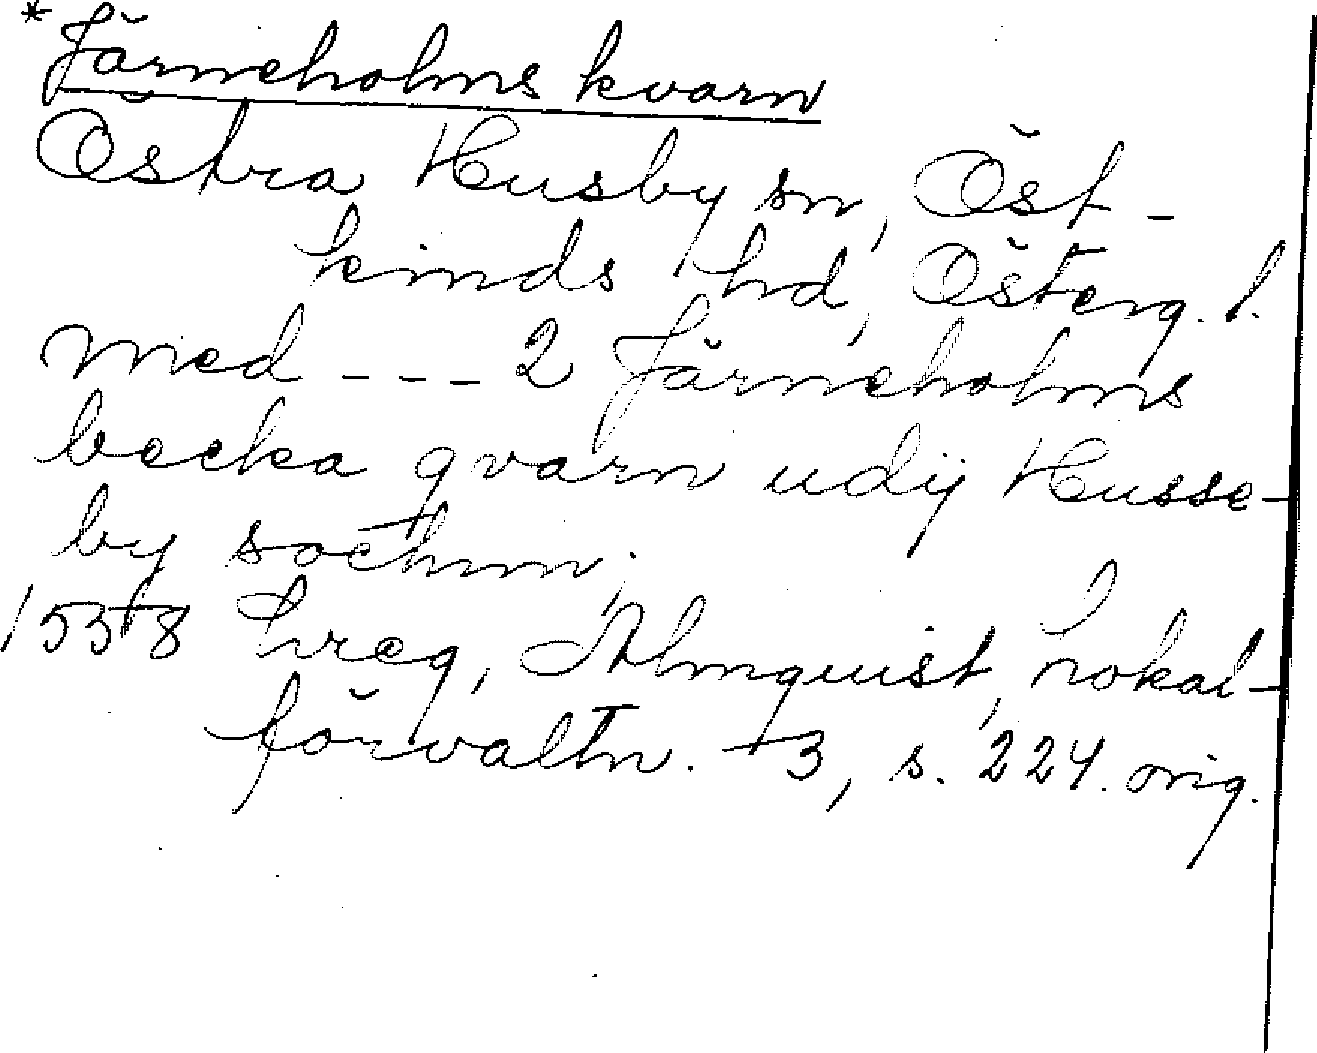 *Järneholms kvarn
Östra Husby sn, Öst-
kinds hd, Österg. l.
med --- 2 Järneholms
becka qvarn udij Husse-
by sochnn;
1538 hreg, Almquist, Lokal-
förvaltn. 3, s. 224. orig.